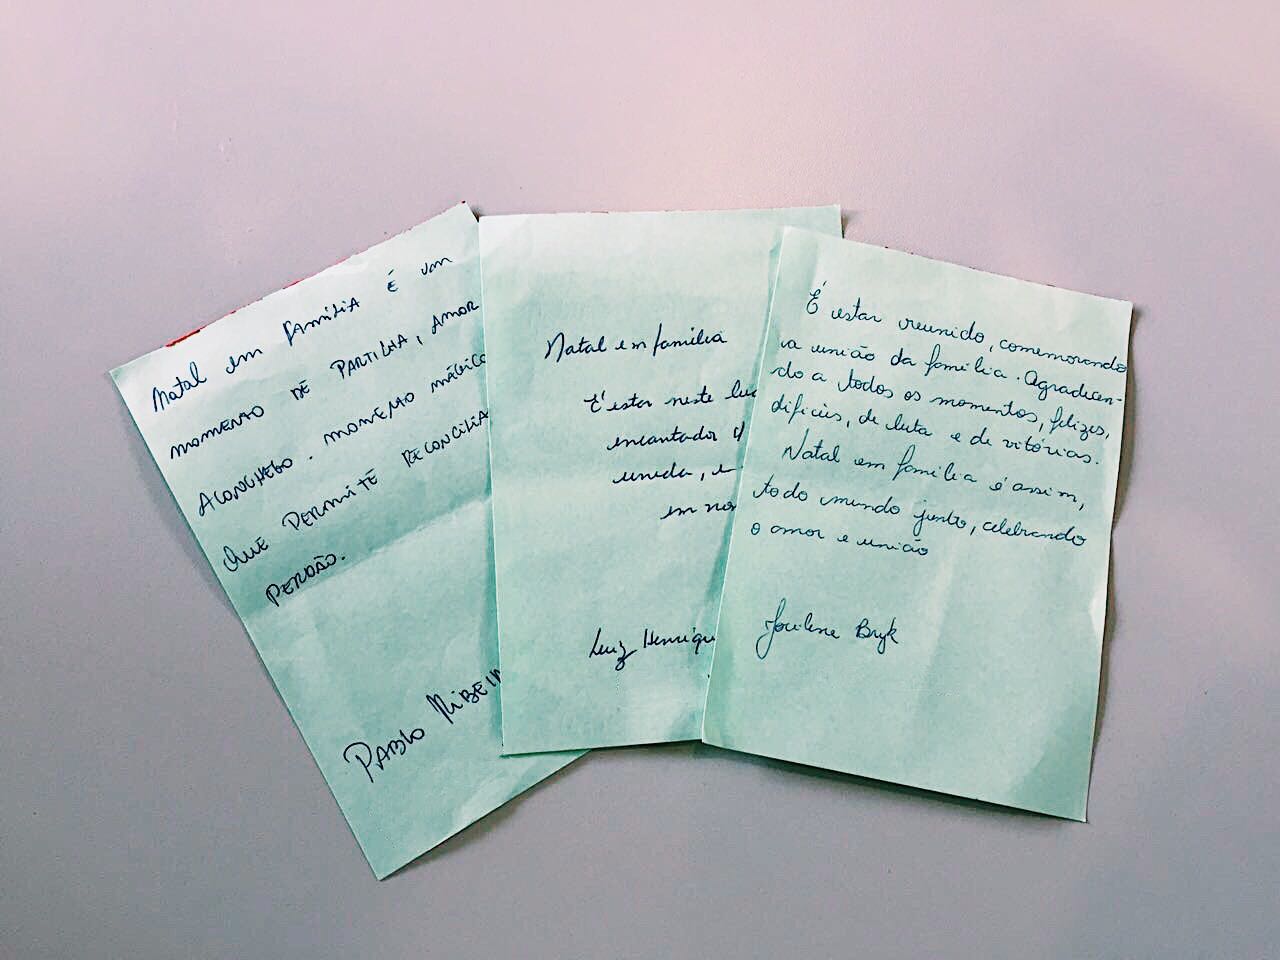 Natal em família é um
momento de partilha, amor
aconchego. momento mágico
que permite reconcilia
perdão.
Pablo Ribei
Natal em família
É estar neste lu
encantador
unida, e
em no
Luiz Henriqu
É estar reunido, comemorando
a união da família. Agradecen-
do a todos os momentos, felizes,
difíceis, de luta e de vitórias.
Natal em família é assim,
todo mundo junto, celebrando
o amor e união
Bryk